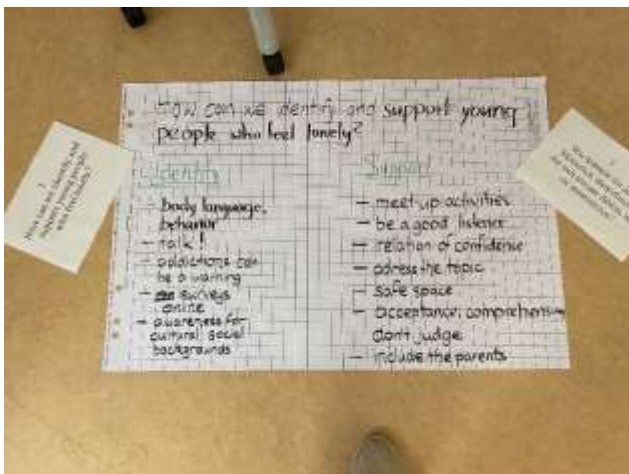 How can we identify and support young
people who feel lonely?
Identify
- body language,
behavior
- talk!
- addictions can
be a warning
- surveys
online
- awareness for
cultural, social
backgrounds
Support
- meet-up activities
- be a good listener
- relation of confidence
- adress the topic
- safe space
- acceptance, comprehension
don't judge
- include the parents
How can we identify and
support young people
who feel lonely?